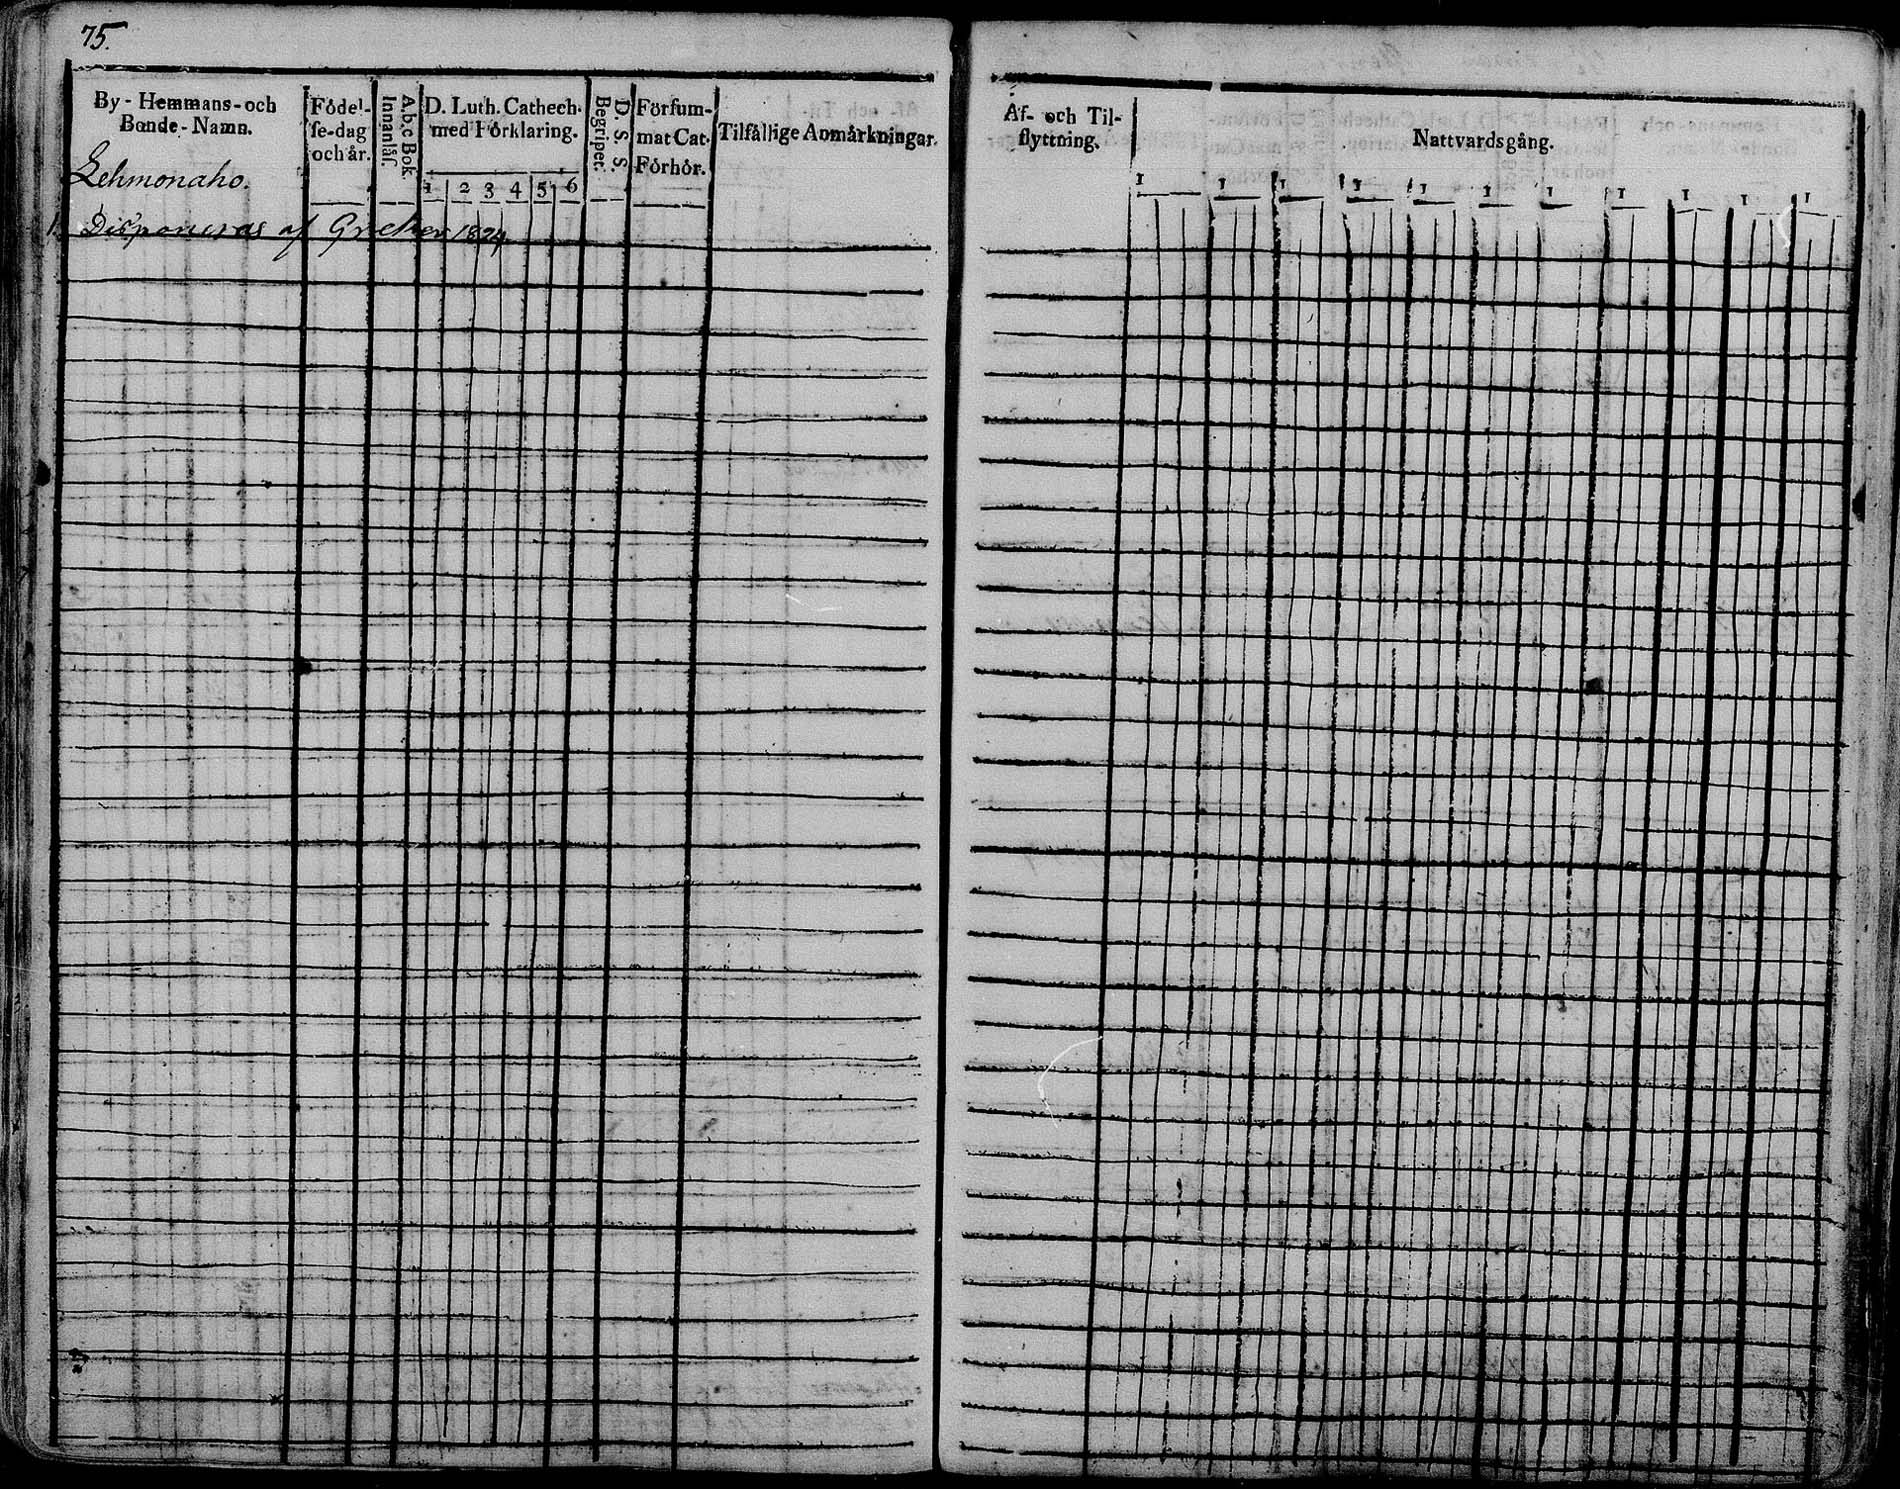 75.
By-Hemmans-och
Bonde-Namn.
Födel-
se-dag
och år.
A.b.c Bok.
Innanläs.
D. Luth. Cathech.
med Förklaring.
1 2 3 4 5 6
D. S. S.
Begripet.
Försum-
mat Cat.
Förhör.
Tilfällige Anmärkningar.
Lehmonaho.
1. Disponeras af 1824
Af- och Til-
flyttning.
Nattvardsgång.
1 1 1 1 1 1 1 1 1 1 1